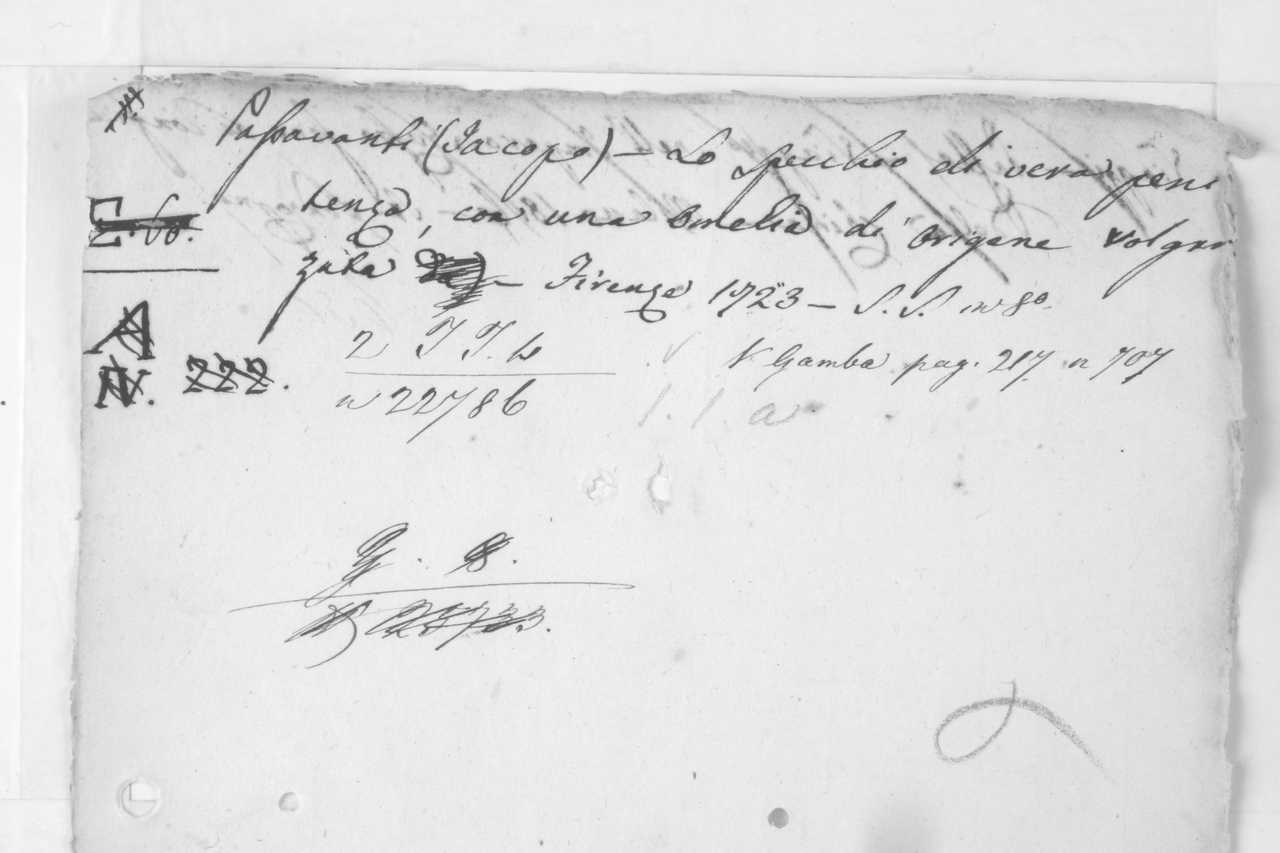 Passavanti (Jacopo) – Lo specchio di vera peni
tenza, con una omelia di Origene volgar
zata – Firenze 1723 – S. S. in 8º.
2 T T. 4
V Gamba pag. 217. n 707
A
N. 222.
n 22786
1. 1 a
8.